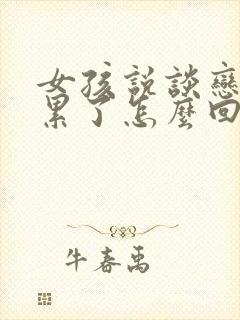 女孩説談戀
累了怎麼回
牛春禹